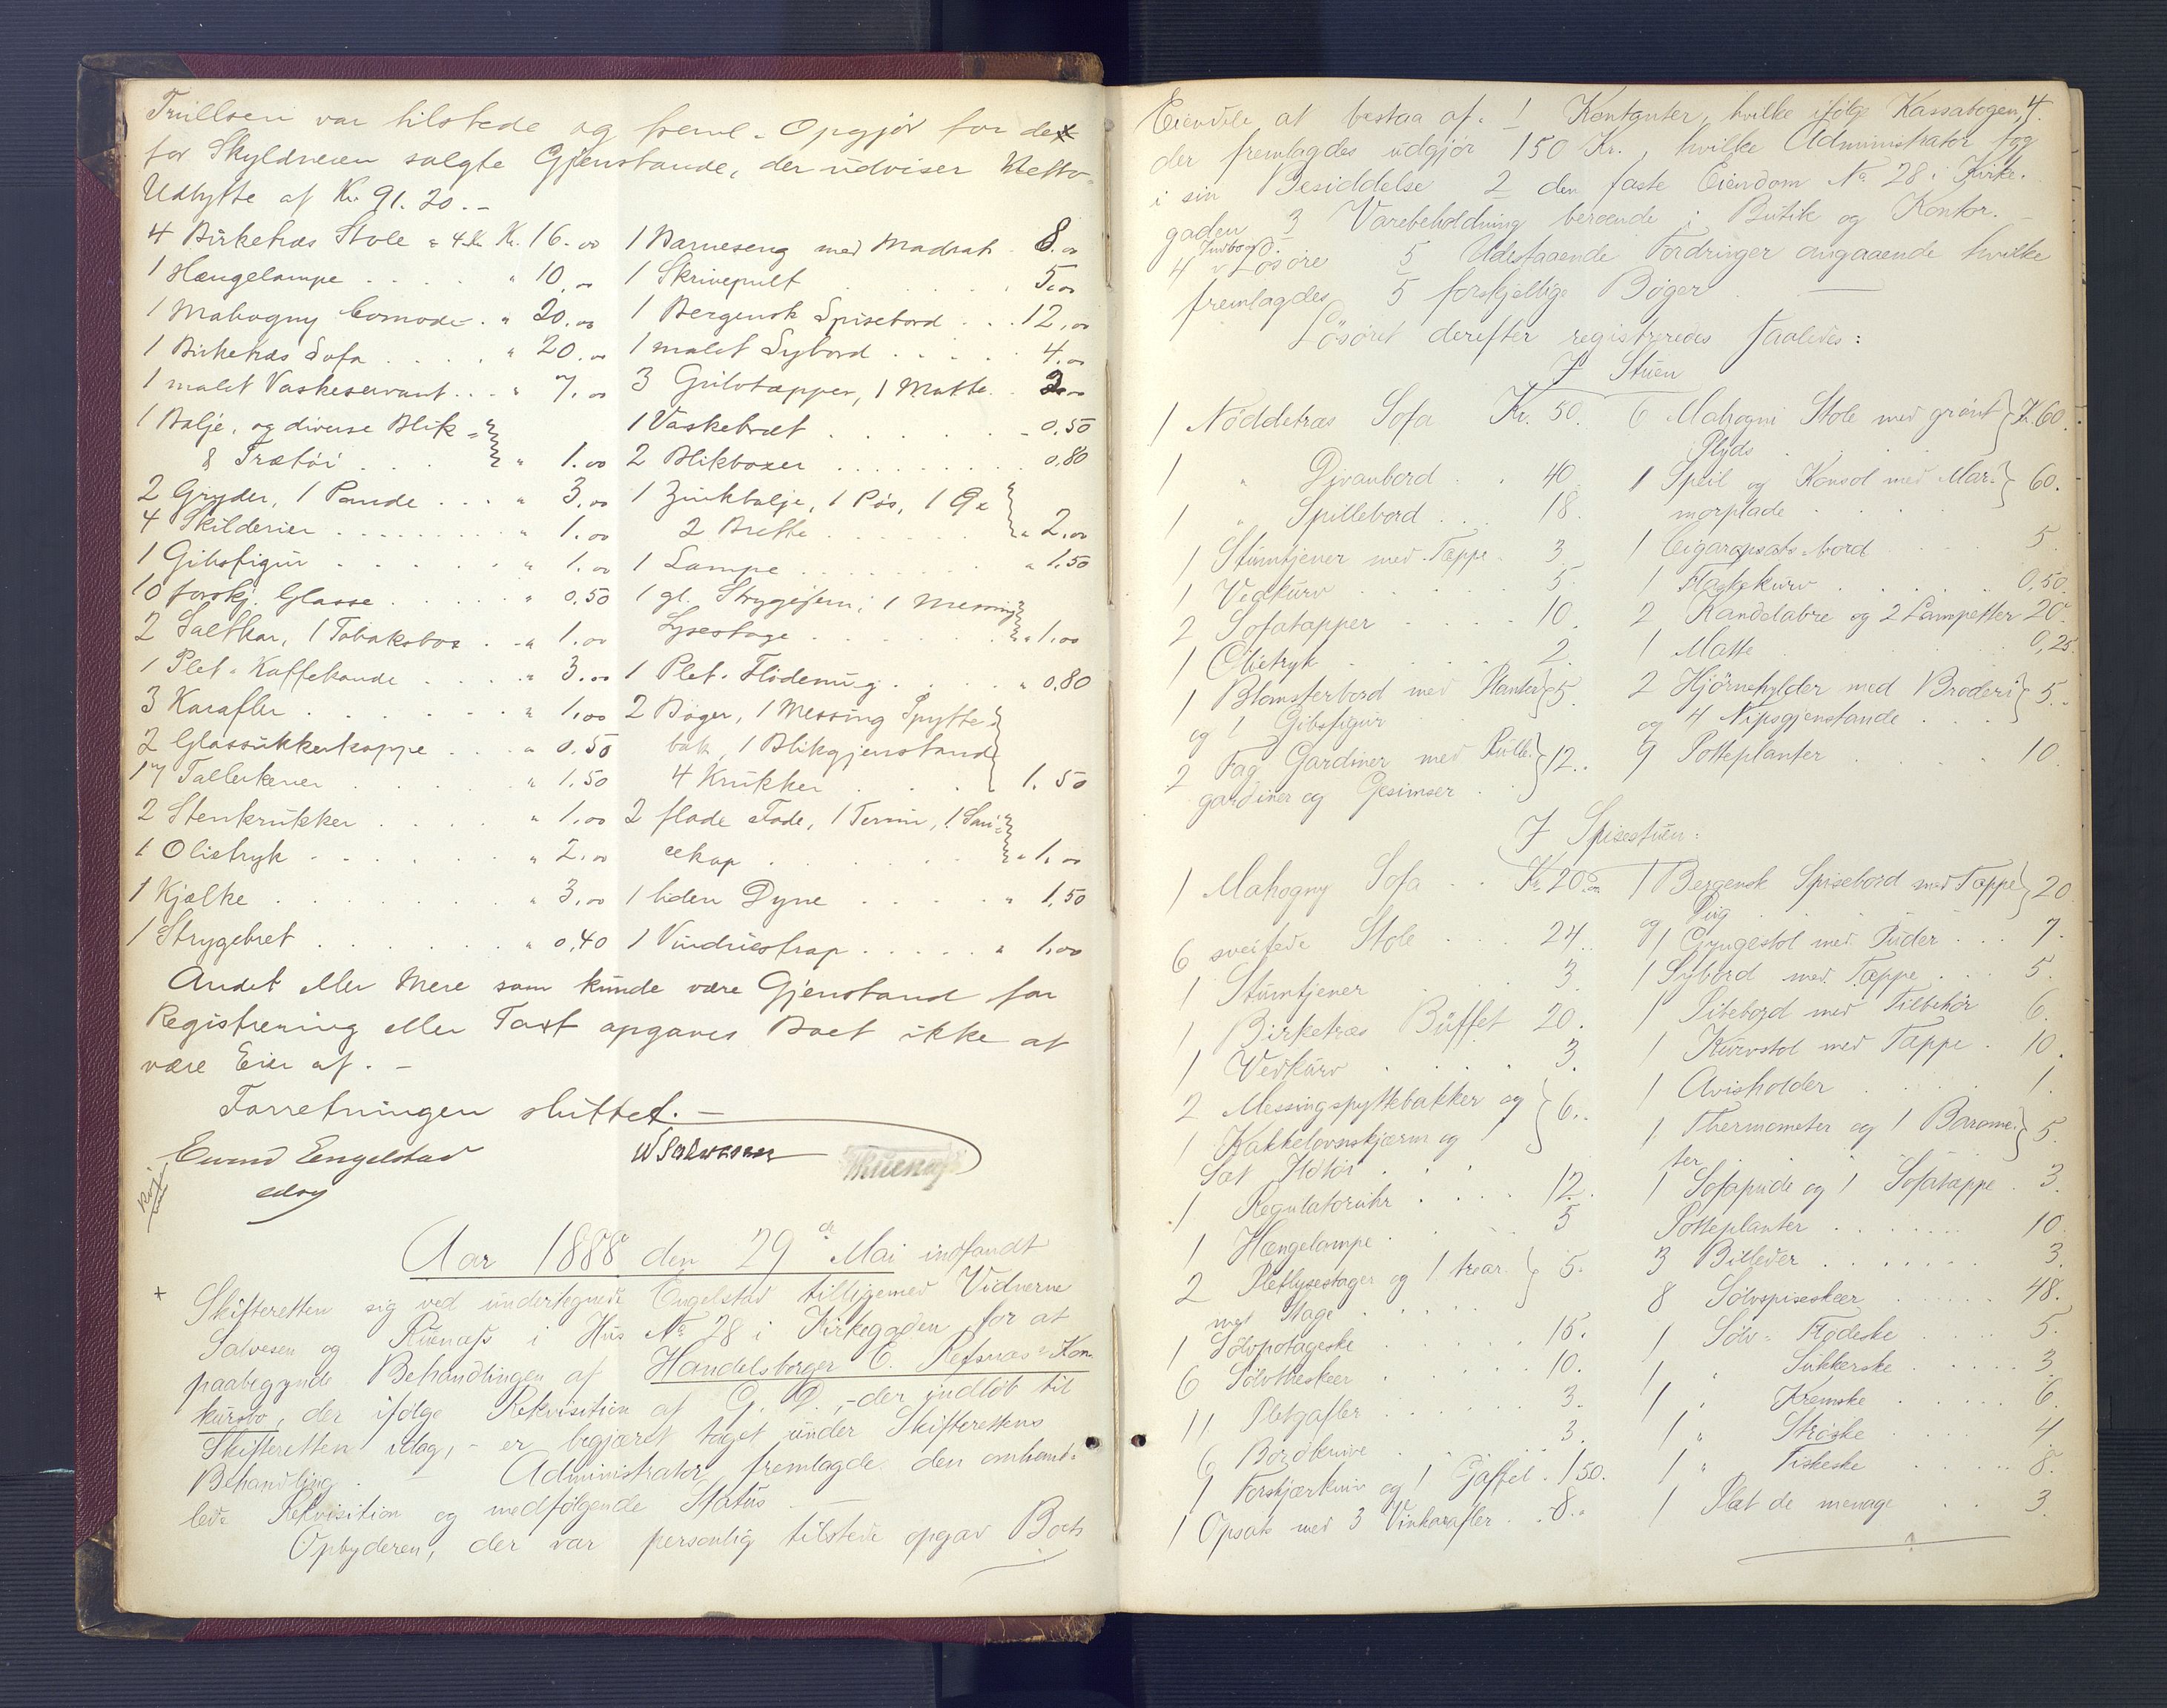 var tilstede og freml. Opgjør for de
for Skyldneren solgte Gjenstande, der udviser Netto-
Udbytte af Kr. 91.20.-
4 Birketræs Stole a 4 Kr Kr. 16.00
1 Hængelampe . . . . " 10.00
1 Mahogny Comode . " 20.00
1 Birketræs Sofa . . . . " 20.00
1 malet Vaskeservant . . . " 7.00
1 Balje, og diverse Blik-
& Trætøi . . . " 1.00
2 Gryder, 1 Pande . . . " 3.00
4 Skilderier . . . . . . . . " 1.00
1 Gibsfigur . . . . . . " 1.00
10 forskj. Glasse . . . . . " 0.50
2 Saltkar, 1 Tobaksbox . - " 1.00
1 Plet-Kaffekande . . . . " 3.00
3 Karafler . . . . . . . " 1.00
2 Glassukkerkoppe . . . " 0.50
17 Tallerkener . . . . . " 1.50
2 Stenkrukker . . . . " 1.00
1 Olietryk . . . . . . " 2.00
1 Kjælke . . . . . . . " 3.00
1 Strygebret . . . . . . " 0.40
1 Barneseng med Madrats 8.00
1 Skrivepult . . . . . . 5.00
1 Bergensk Spisebord . . . 12.00
1 malet Sybord . . . . . 4.00
3 Gulvtæpper, 1 Matte . .00
1 Vaskebræt . . . . . . - 0.50
2 Blikboxer . . . . . . . . 0.80
1 Zinkbalje, 1 Pøs, 1 Øx
2 Brette . . . . . . " 2.00
1 Lampe . . . . . . . . " 1.50
1 gl. Strygejern, 1 Messing
Lysestage . . . . . . . " 1.00
1 Plet-Flødemug . . . . . " 0.80
2 Bøger, 1 Messing Spytte-
bak, 1 Blikgjenstand
4 Krukker . . . . 1.50
2 flade Fade, 1 Terrin, 1 Sau-
cekop . . . . . . . " 1.00
1 liden Dyne . . . . . " 1.50
1 Vinduestrap . . . . . " 1.00
Andet eller Mere som kunde være Gjenstand for
Registrering eller Taxt opgaves Boet ikke at
være Eier af. -
Forretningen sluttet. -
Eivind Engelstad
edsv
W Salvesen
Ruenæss
Aar 1888 den 29de Mai indfandt
Skifteretten sig ved undertegnede Engelstad tilligemed Vidnerne
Salvesen og Ruenæss i Hus No 28 i Kirkegaden for at
paabegynde Behandlingen af Handelsborger E. Refsnæs' Kon-
kursbo, der ifølge Rekvisition af G. D., - der indløb til
Skifteretten idag, - er begjæret taget under Skifterettens
Behandling. - Administrator fremlagde den omhand-
lede Rekvisition og medfølgende Status. -
Opbyderen, der var personlig tilstede opgav Boets
4.
Eiendele at bestaa af: 1 Kontanter, hvilke ifølge Kassabogen,
der fremlagdes udgjør 150 Kr., hvilke Administrator tog
i sin Besiddelse 2 den faste Eiendom No 28 i Kirke-
gaden 3 Varebeholdning beroende i Butik og Kontor. -
Indbo og D:
4 Løsøre 5 Udestaaende Fordringer angaaende hvilke
fremlagdes 5 forskjellige Bøger. -
Løsøret derefter registreredes saaledes:
I Stuen
1 Nøddetræs Sofa Kr. 50.
1 " Divanbord . . 40
1 " Spillebord . . . 18.
1 Stumtjener med Tæppe . 3.
1 Vedkurv . . . . . 5.
2 Sofatæpper . . . . 10.
1 Olietryk . . . . . 2.
1 Blomsterbord med Planter 5.
og 1 Gibsfigur
2 Fag Gardiner med Rulle- 12..
gardiner og Gesimser . .
6 Mahogni Stole med grønt Kr. 60.
Plyds . . . . .
1 Speil og Konsol med Mar- 60.
morplade . . . . .
1 Cigaropsats-bord . . 5.
1 Flaskekurv . . . . . 0,50.
2 Kandelabre og 2 Lampetter 20.
1 Matte . . . . . . 0,25.
2 Hjørnehylder med Broderi 5..
og 4 Nipsgjenstande . . .
9 Potteplanter . . . . . 10.
I Spisestuen:
1 Mahogny Sofa . . Kr. 20.00
6 sveifede Stole . . . 24..
1 Stumtjener . . . . 3
1 Birketræs Büffet 20.
1 Vedkurv . . . . . 3.
2 Messingspyttebakker og 6..
1 Kakkelovnsskjærm og 1
Sæt Ildtøi . . . .
1 Regulatoruhr . . . . 12.
1 Hængelampe . . . . 5
2 Pletlysestager og 1 trear- 5.
met Stage . . . . .
1 Sølvpotageske . . . . 15.
6 Sølvtheskeer . . . . 10.
11 Pletgafler . . . . . 3.
6 Bordknive . . . . . 3.
1 Forskjærkniv og 1 Gaffel . 1,50.
1 Opsats med 3 Vinkarafler . . 8..
1 Bergensk Spisebord med Tæppe 20
og Dug . . . . .
1 Gyngestol med Puder . . . 7.
1 Sybord med Tæppe . . . 5.
1 Pibebord med Tilbehør 6.
1 Kurvstol med Tæppe . 10.
1 Avisholder . . . . . 1.
1 Thermometer og 1 Barome- 5.
ter . . . . . .
1 Sofapude og 1 Sofatæppe . 3.
Potteplanter . . . . . . 10
3 Billeder . . . . . . . 3.
8 Sølvspiseskeer . . . . . 48.
1 Sølv-Flødeske . . . . 5.
1 " Sukkerske . . . . . 3.
1 " Kremske . . . . . 6.
1 " Strøske . . . . . 4
1 " Fiskeske . . . . . 8.
1 Plat de menage . . . 3.